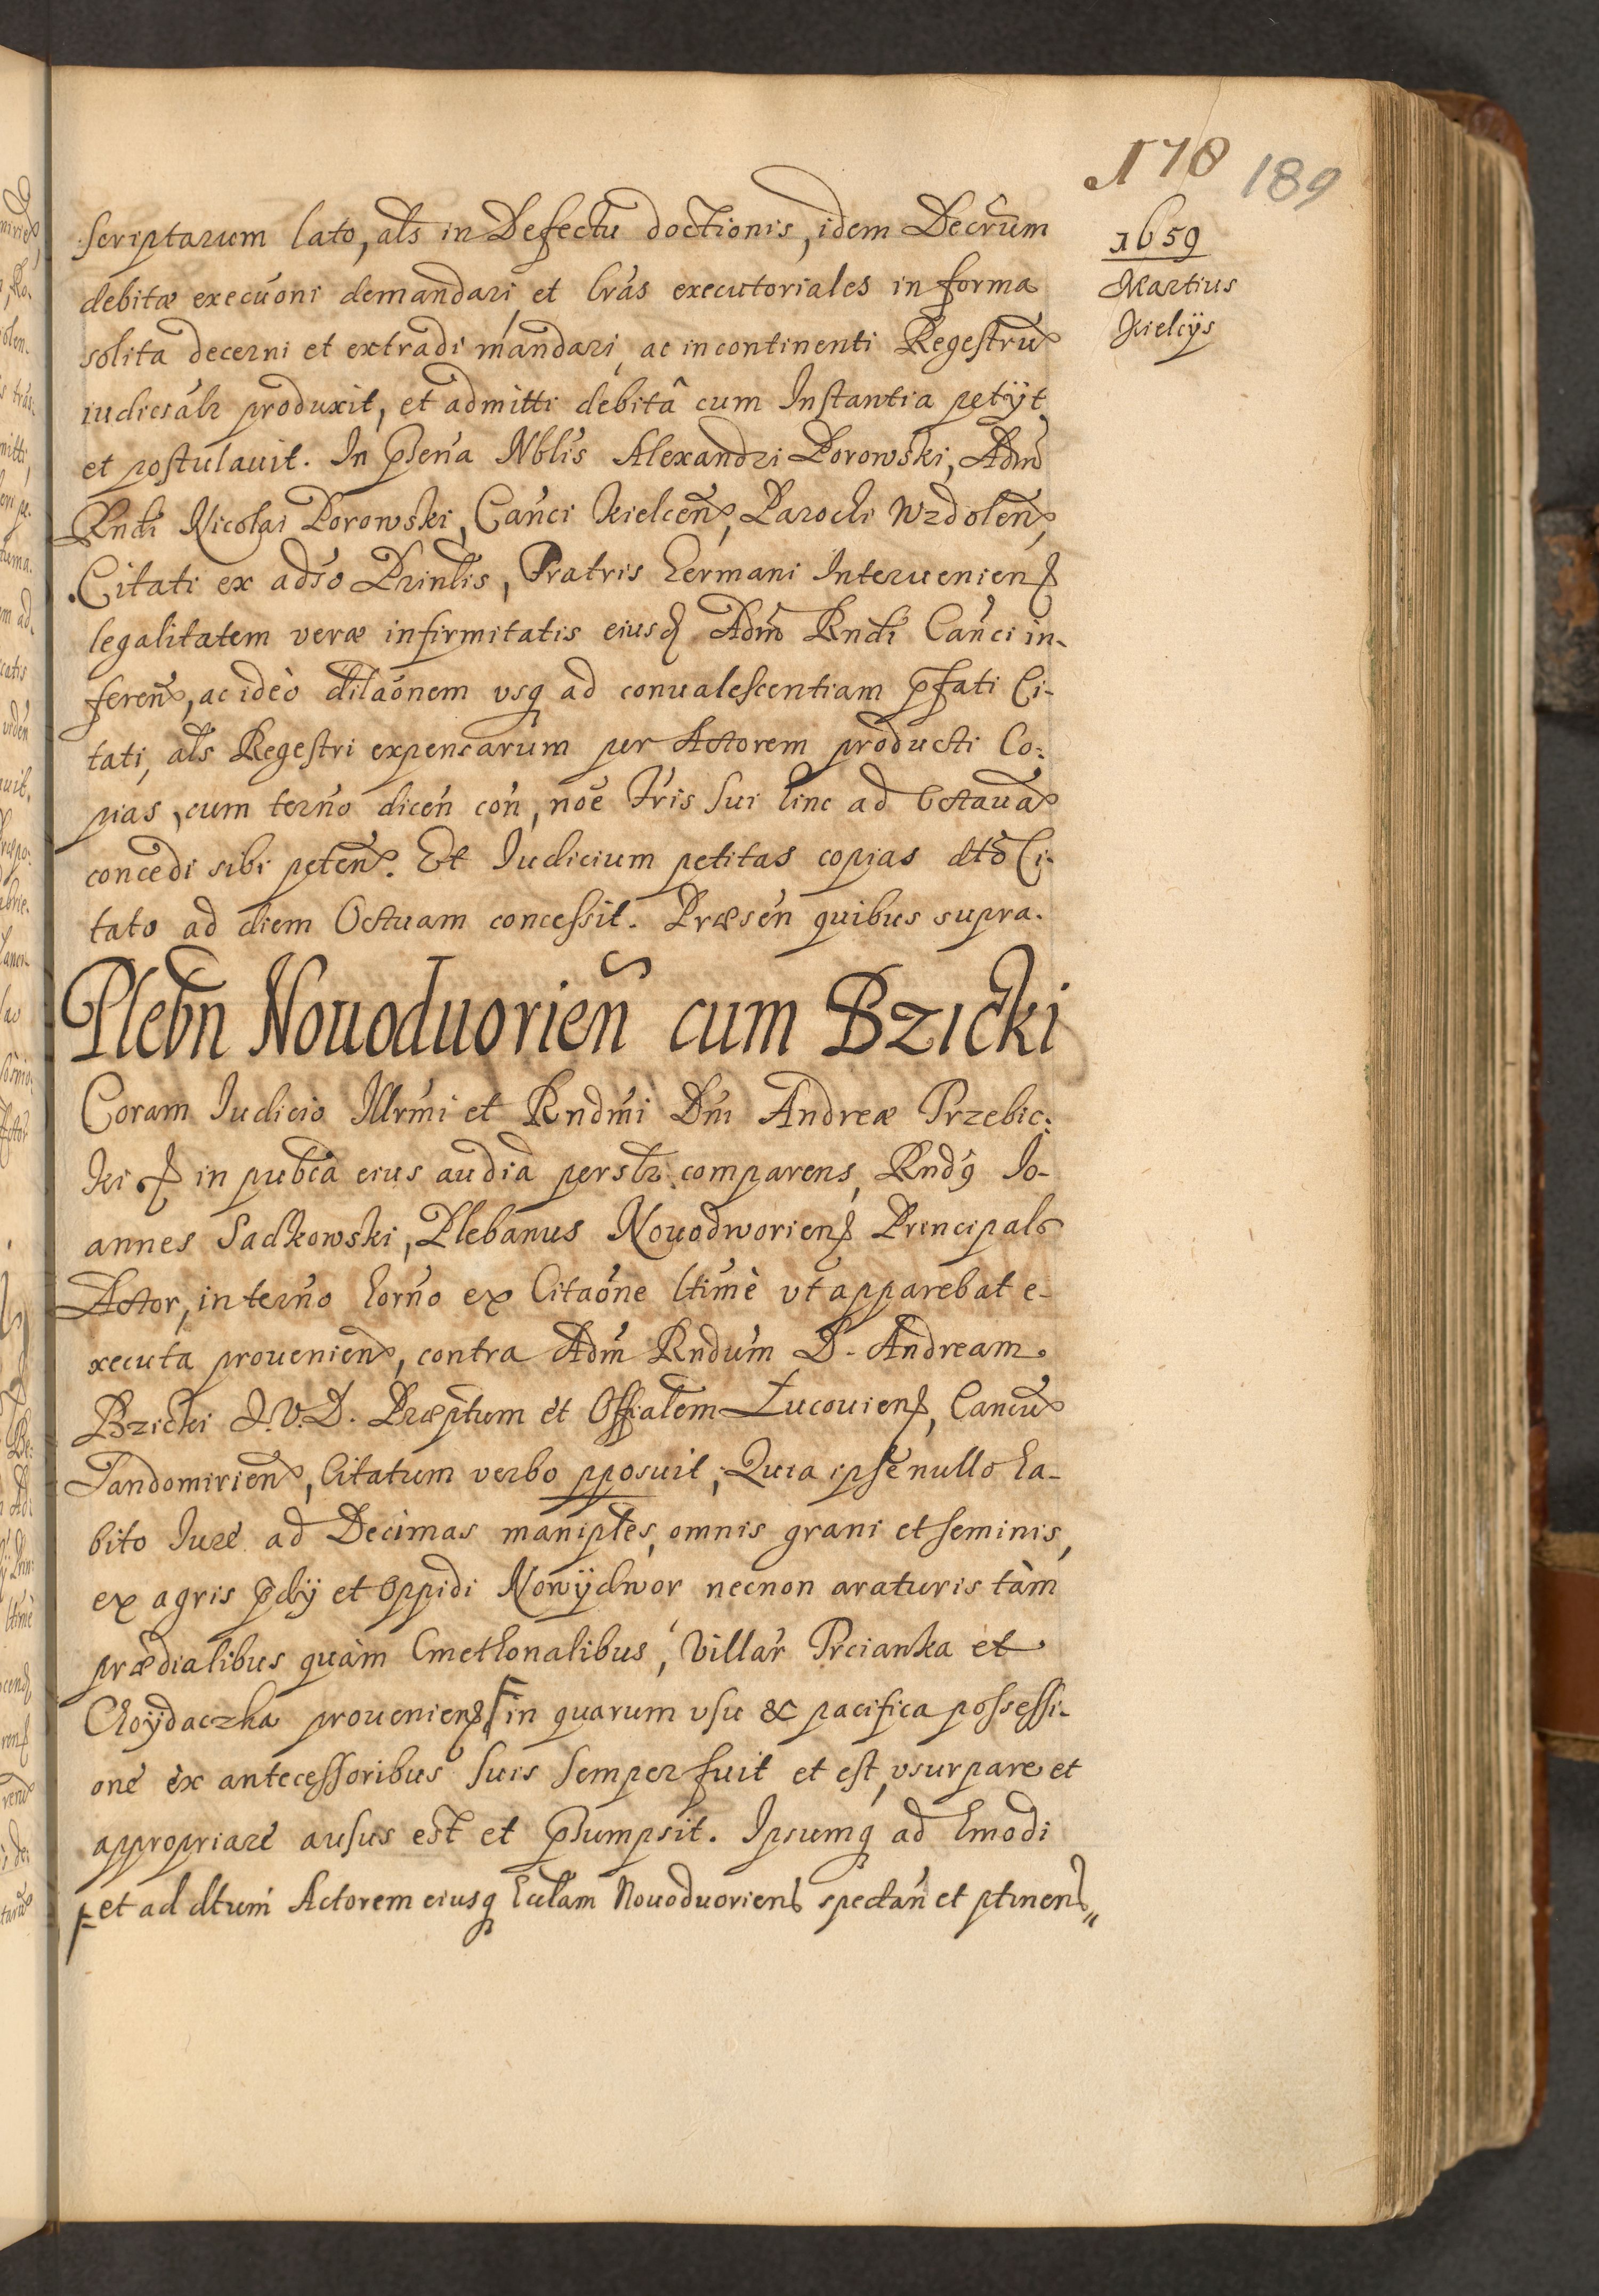 178 189
1659
Martius
Kielcijs
scriptarum lato, als in Defectu doctionis, idem Decrum
debitæ execuoni demandari et lras executoriales in forma
solita decerni et extradi mandari, ac in continenti Regestru
produxit, et admitti debitâ cum Instantia petÿt
et postulauit. In psena Nblis Alexandri Borowski, Adm
Rndi Nicolai Borowski, Canci Kielcen, Parochi Wzdolen,
Citati ex adso Prinlis, Fratris Germani Interuenien
legalitatem veræ infirmitatis eiusd Adm Rndi Canci in-
feren, ac ideò dilaonem vsq ad conualescentiam pfati Ci-
tati, als Regestri expensarum per Actorem producti Co-
pias, cum terno dicen con, noe Fris sui hinc ad Octaua
concedi sibi peten. Et Iudicium petitas copias dto Ci-
tato ad diem Octuam concessit. Præsen quibus supra.
Plebn Nouoduorien cum Bzicki
Coram Iudicio Illrmi et Rndmi Dni Andreæ Trzebic-
ki in pubca eius audia persltr comparens, Rndq Io-
annes Sadkowski, Plebanus Nouodworien Principals
Actor, in terno horno ex Citaone ltimè vt apparebat e-
xecuta prouenien, contra Adm Rndum D. Andream
Bzicki I.V.D. Præptum et Offialem Łucouien, Cancu
Sandomirien, Citatum verbo pposuit, Quia ipse nullo ha-
bito Iure ad Decimas maniples, omnis grani et seminis,
ex agris pdij et Oppidi Nowÿdwor necnon araturis tàm
prædialibus quàm Cmethonalibus, Villar Prcianka et
Choÿdaczka prouenien in quarum vsu & pacifica possessi-
one ex antecessoribus suis semper fuit et est, vsurpare et
appropriare ausus est et psumpsit. Ipsumq ad hmodi
et ad dtum Actorem eiusq Eclam Nouoduorien spectan et ptinen